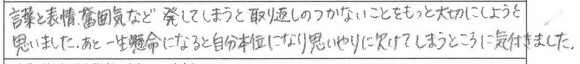 言葉と表情、雰囲気など 発してしまうと取り返しのつかないことをもっと大切にしようと
思いました。あと一生懸命になると自分本位になり思いやりに欠けてしまうところに気付きました。